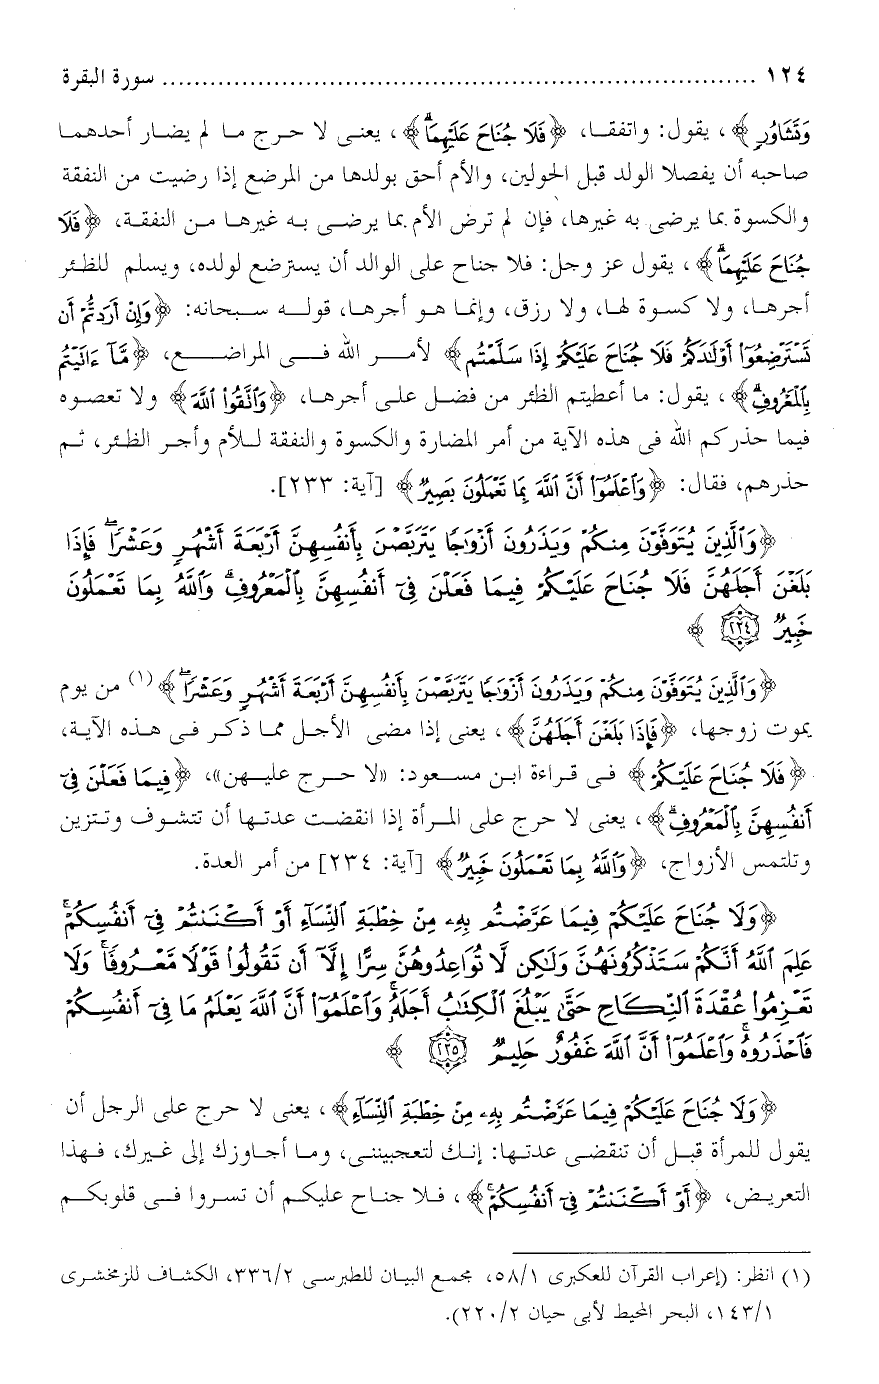 ١٢٤ ........................................................................... سورة البقرة
وَتَشَاوُرٍ﴾، يقول: واتفقا، ﴿فَلَا جُنَاحَ عَلَيْهِمَا﴾، يعنى لا حرج ما لم يضار أحدهما
صاحبه أن يفصلا الولد قبل الحولين، والأم أحق بولدها من المرضع إذا رضيت من النفقة
والكسوة بما يرضى به غيرها، فإن لم ترض الأم بما يرضى به غيرها من النفقة، ﴿فَلَا
جُنَاحَ عَلَيْهِمَا﴾، يقول عز وجل: فلا جناح على الوالد أن يسترضع لولده، ويسلم للظئر
أجرها، ولا كسوة لها، ولا رزق، وإنما هو أجرها، قوله سبحانه: ﴿وَإِنْ أَرَدتُّمْ أَن
تَسْتَرْضِعُوٓا۟ أَوْلَٰدَكُمْ فَلَا جُنَاحَ عَلَيْكُمْ إِذَا سَلَّمْتُم﴾ لأمر الله فى المراضع، ﴿مَّآ ءَاتَيْتُم
بِٱلْمَعْرُوفِ﴾، يقول: ما أعطيتم الظئر من فضل على أجرها، ﴿وَٱتَّقُوا۟ ٱللَّهَ﴾ ولا تعصوه
فيما حذركم الله فى هذه الآية من أمر المضارة والكسوة والنفقة للأم وأجر الظئر، ثم
حذرهم، فقال: ﴿وَٱعْلَمُوٓا۟ أَنَّ ٱللَّهَ بِمَا تَعْمَلُونَ بَصِيرٌ﴾ [آية: ٢٣٣].
﴿وَٱلَّذِينَ يُتَوَفَّوْنَ مِنكُمْ وَيَذَرُونَ أَزْوَٰجًا يَتَرَبَّصْنَ بِأَنفُسِهِنَّ أَرْبَعَةَ أَشْهُرٍ وَعَشْرًا ۖ فَإِذَا
بَلَغْنَ أَجَلَهُنَّ فَلَا جُنَاحَ عَلَيْكُمْ فِيمَا فَعَلْنَ فِىٓ أَنفُسِهِنَّ بِٱلْمَعْرُوفِ ۗ وَٱللَّهُ بِمَا تَعْمَلُونَ
خَبِيرٌ ٢٣٤﴾
﴿وَٱلَّذِينَ يُتَوَفَّوْنَ مِنكُمْ وَيَذَرُونَ أَزْوَٰجًا يَتَرَبَّصْنَ بِأَنفُسِهِنَّ أَرْبَعَةَ أَشْهُرٍ وَعَشْرًا ۖ﴾(١) من يوم
يموت زوجها، ﴿فَإِذَا بَلَغْنَ أَجَلَهُنَّ﴾، يعنى إذا مضى الأجل مما ذكر فى هذه الآية،
﴿فَلَا جُنَاحَ عَلَيْكُمْ﴾ فى قراءة ابن مسعود: «لا حرج عليهن»، ﴿فِيمَا فَعَلْنَ فِىٓ
أَنفُسِهِنَّ بِٱلْمَعْرُوفِ ۗ﴾، يعنى لا حرج على المرأة إذا انقضت عدتها أن تتشوف وتتزين
وتلتمس الأزواج، ﴿وَٱللَّهُ بِمَا تَعْمَلُونَ خَبِيرٌ﴾ [آية: ٢٣٤] من أمر العدة.
﴿وَلَا جُنَاحَ عَلَيْكُمْ فِيمَا عَرَّضْتُم بِهِۦ مِنْ خِطْبَةِ ٱلنِّسَآءِ أَوْ أَكْنَنتُمْ فِىٓ أَنفُسِكُمْ ۚ
عَلِمَ ٱللَّهُ أَنَّكُمْ سَتَذْكُرُونَهُنَّ وَلَٰكِن لَّا تُوَاعِدُوهُنَّ سِرًّا إِلَّآ أَن تَقُولُوا۟ قَوْلًا مَّعْرُوفًا ۚ وَلَا
تَعْزِمُوا۟ عُقْدَةَ ٱلنِّكَاحِ حَتَّىٰ يَبْلُغَ ٱلْكِتَٰبُ أَجَلَهُۥ ۚ وَٱعْلَمُوٓا۟ أَنَّ ٱللَّهَ يَعْلَمُ مَا فِىٓ أَنفُسِكُمْ
فَٱحْذَرُوهُ ۚ وَٱعْلَمُوٓا۟ أَنَّ ٱللَّهَ غَفُورٌ حَلِيمٌ ٢٣٥﴾
﴿وَلَا جُنَاحَ عَلَيْكُمْ فِيمَا عَرَّضْتُم بِهِۦ مِنْ خِطْبَةِ ٱلنِّسَآءِ﴾، يعنى لا حرج على الرجل أن
يقول للمرأة قبل أن تنقضى عدتها: إنك لتعجبيننى، وما أجاوزك إلى غيرك، فهذا
التعريض، ﴿أَوْ أَكْنَنتُمْ فِىٓ أَنفُسِكُمْ ۚ﴾، فلا جناح عليكم أن تسروا فى قلوبكم
(١) انظر: (إعراب القرآن للعكبرى ٥٨/١، مجمع البيان للطبرسى ٣٣٦/٢، الكشاف للزمخشرى
١٤٣/١، البحر المحيط لأبى حيان ٢٢٠/٢).